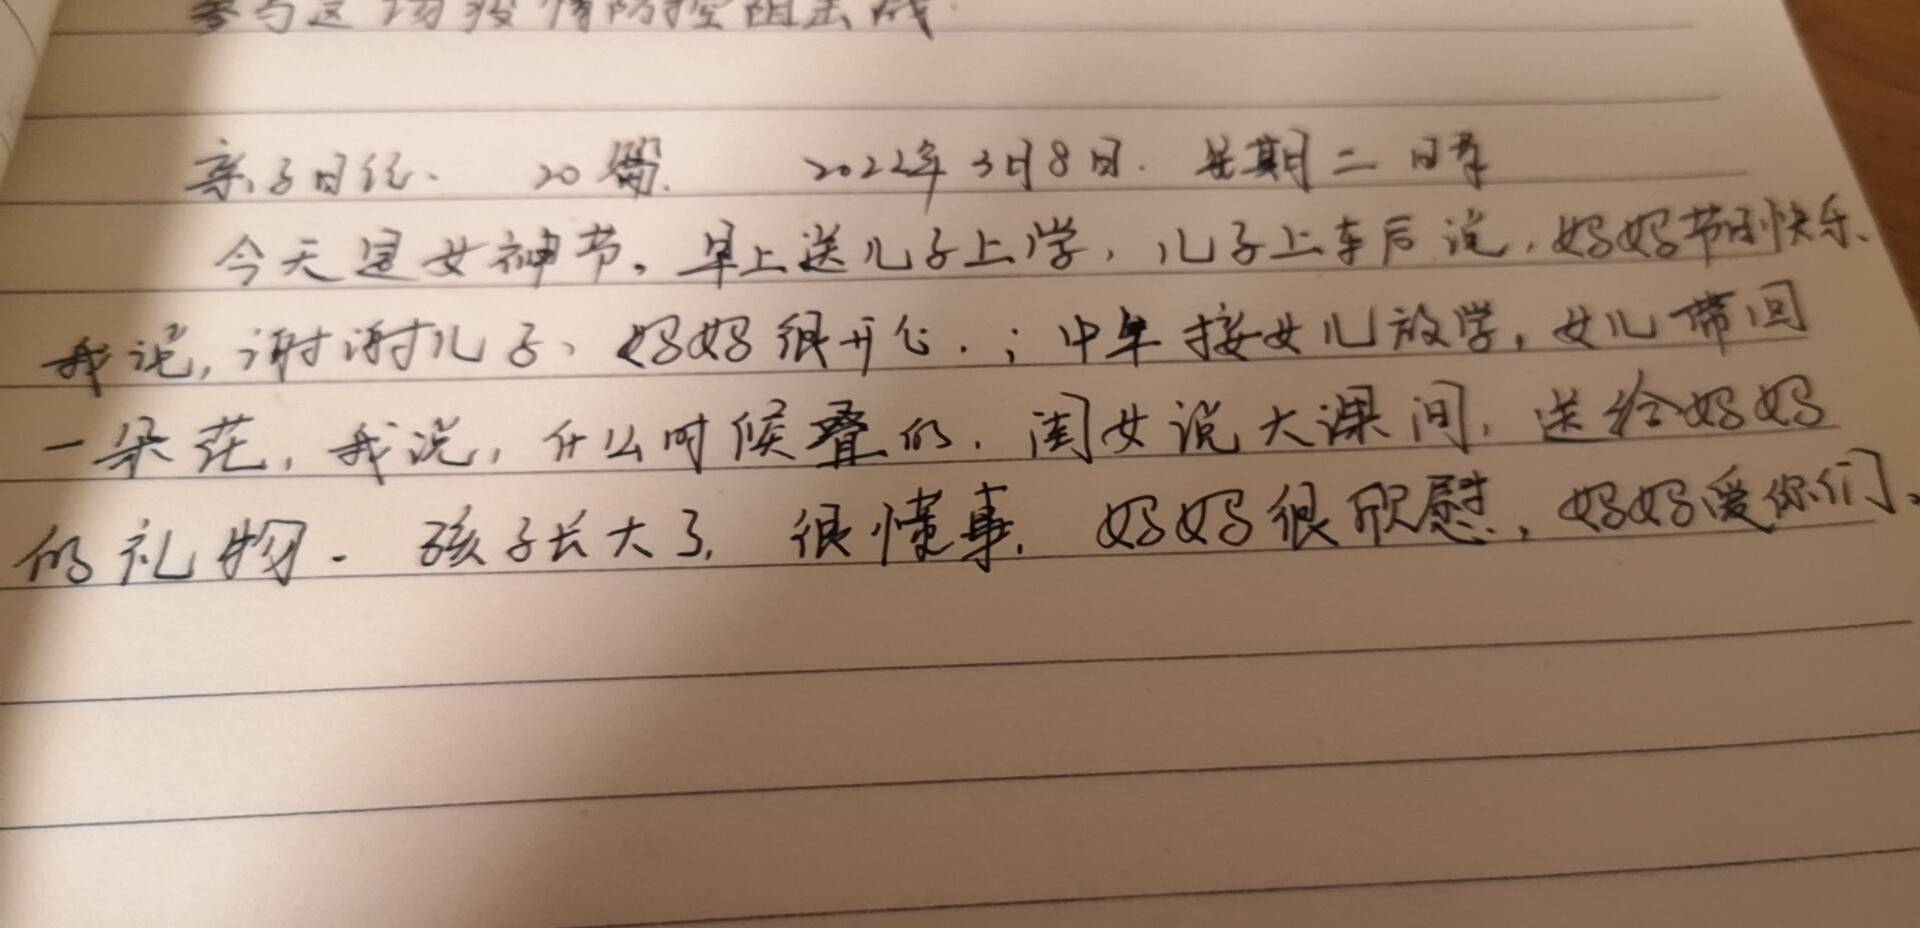 参与这场疫情防控阻击战
亲子日记. 20篇. 2022年3月8日. 星期二
今天是女神节。早上送儿子上学,儿子上车后说,妈妈节日快乐、
我说,谢谢儿子、妈妈很开心.;中午接女儿放学,女儿带回
一朵花,我说,什么时候叠的.闺女说大课间,送给妈妈
的礼物.孩子长大了,很懂事.妈妈很欣慰,妈妈爱你们、